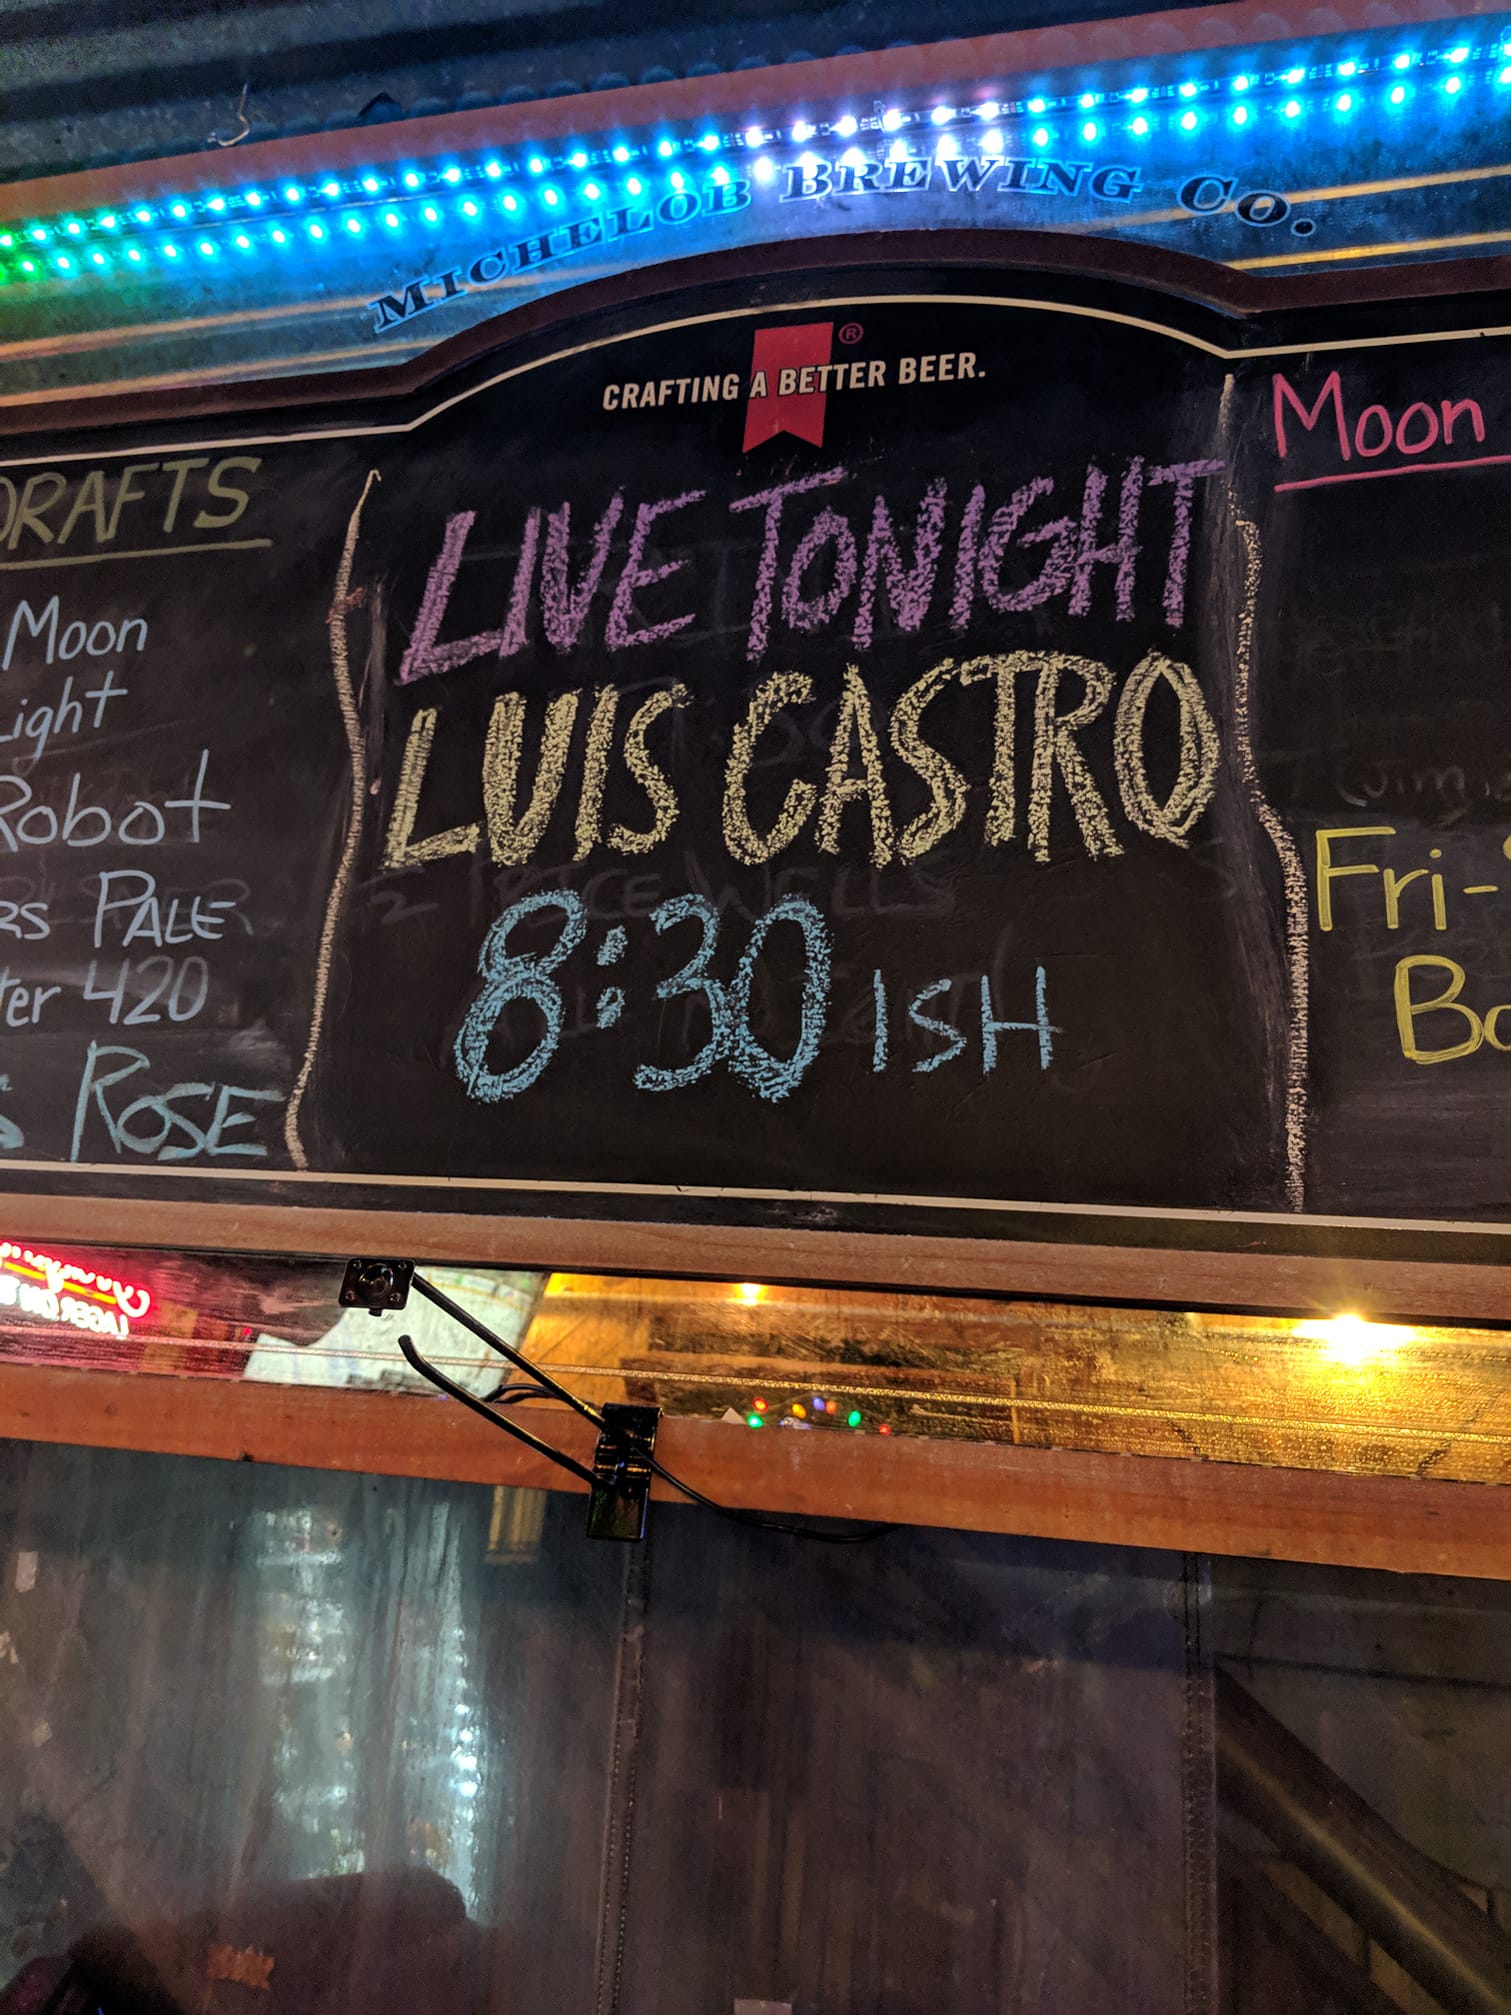 MICHELOB BREWING CO.
CRAFTING A BETTER BEER.
DRAFTS
Moon
Light
Robot
RS PALE
ter 420
S ROSE
LIVE TONIGHT
LUIS CASTRO
8:30 ISH
Moon
Fri-
Bo